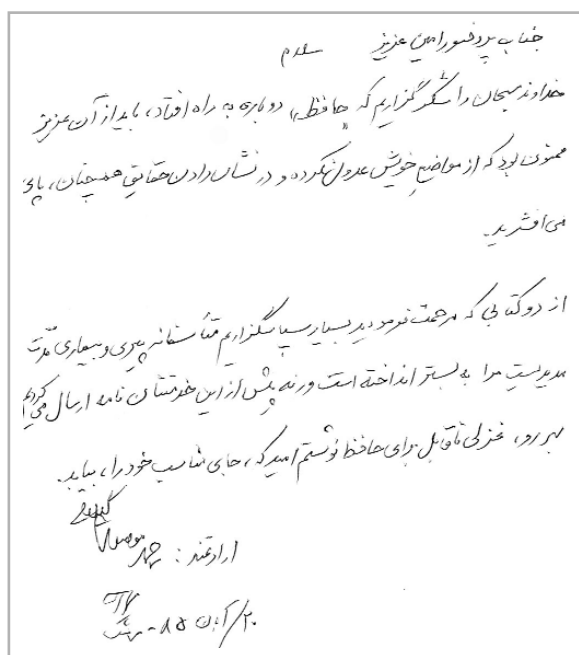 جناب پروفسور امین عزیز سلام
خداوند سبحان را شکرگزاریم که «حافظ» دوباره به راه افتاد، باید از آن عزیز
ممنون بود که از مواضع خویش عدول نکرده و در نشان دادن حقایق همچنان، پای
می‌افشرید.
از دو کتابی که مرحمت فرمودید بسیار سپاسگزاریم متأسفانه پیری و بیماری مدت
مدیدیست مرا به بستر انداخته است ورنه پیش از این خدمتتان نامه ارسال می‌کردم
بهر رو، غزلی ناقابل برای حافظ نوشتم امید که، جای مناسب خود را، بیابد.
ارادتمند:
۲۰/آبان ۸۵-